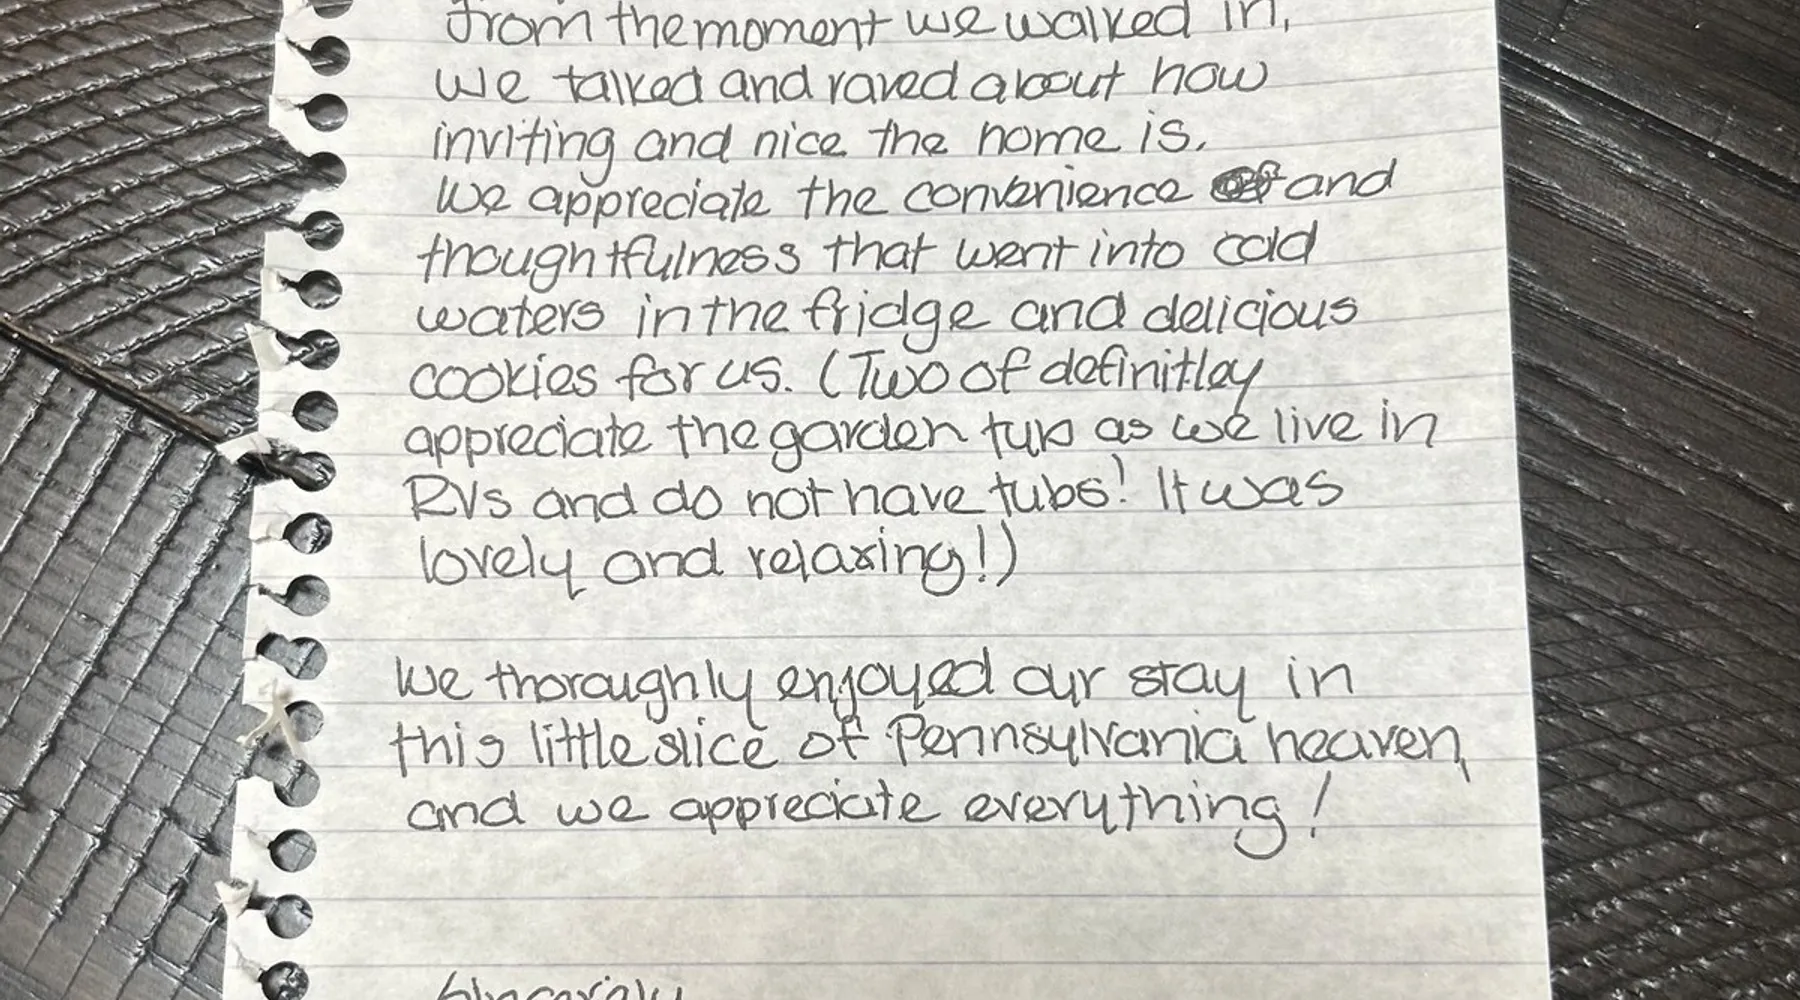 from the moment we walked in,
we talked and raved about how
inviting and nice the home is.
We appreciate the convenience and
thoughtfulness that went into cold
waters in the fridge and delicious
cookies for us. (Two of definitley
appreciate the garden tub as we live in
RVs and do not have tubs! It was
lovely and relaxing!)
We thoroughly enjoyed our stay in
this little slice of Pennsylvania heaven,
and we appreciate everything!
Sincerely